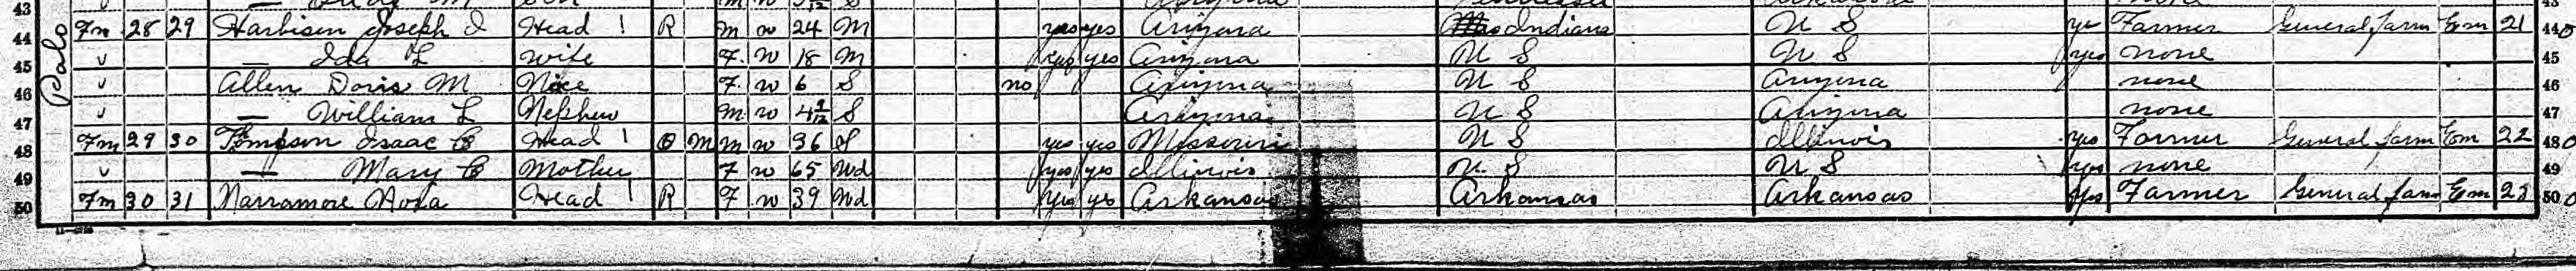 43 M Son m w S Arizona Tennessee Arkansas none 43
44 Fm 28 29 Harbison Joseph I Head 1 R m w 24 M yes yes Arizona Indiana U S yes Farmer General farm Em 21 44 0
45 ✓ — Ida L wife F w 18 M yes yes Arizona U S U S yes none 45
46 ✓ Allen Doris M Niece F w 6 S no Arizona U S Arizona none 46
47 ✓ — William L Nephew m w 4 S Arizona U S Arizona none 47
48 Fm 29 30 Tompson Isaac C Head 1 O M m w 36 S yes yes Missouri U S Illinois yes Farmer General farm Em 22 48 0
49 ✓ — Mary C Mother F w 65 Wd yes yes Illinois U S U S yes none 49
50 Fm 30 31 Narramore Nora Head 1 R F w 39 Wd yes yes Arkansas Arkansas Arkansas yes Farmer General farm Em 23 50 0
Palo